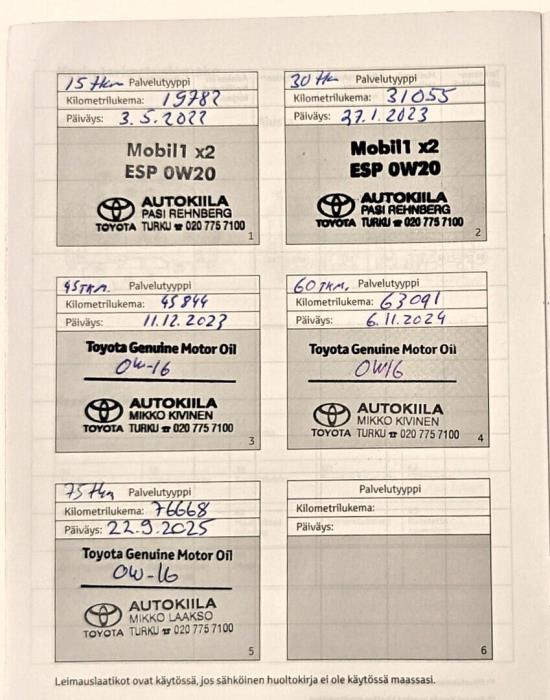 15 tkm Palvelutyyppi
Kilometrilukema: 19782
Päiväys: 3.5.2022
Mobil1 x2
ESP 0W20
AUTOKIILA
PASI REHNBERG
TOYOTA TURKU ☎ 020 775 7100
1
30 tkm Palvelutyyppi
Kilometrilukema: 31055
Päiväys: 27.1.2023
Mobil1 x2
ESP 0W20
AUTOKIILA
PASI REHNBERG
TOYOTA TURKU ☎ 020 775 7100
2
45 TKM. Palvelutyyppi
Kilometrilukema: 45844
Päiväys: 11.12.2023
Toyota Genuine Motor Oil
0W-16
AUTOKIILA
MIKKO KIVINEN
TOYOTA TURKU ☎ 020 775 7100
3
60 TKM, Palvelutyyppi
Kilometrilukema: 63091
Päiväys: 6.11.2024
Toyota Genuine Motor Oil
0W16
AUTOKIILA
MIKKO KIVINEN
TOYOTA TURKU ☎ 020 775 7100
4
75 tkm Palvelutyyppi
Kilometrilukema: 76668
Päiväys: 22.9.2025
Toyota Genuine Motor Oil
0W-16
AUTOKIILA
MIKKO LAAKSO
TOYOTA TURKU ☎ 020 775 7100
5
Palvelutyyppi
Kilometrilukema:
Päiväys:
6
Leimauslaatikot ovat käytössä, jos sähköinen huoltokirja ei ole käytössä maassasi.